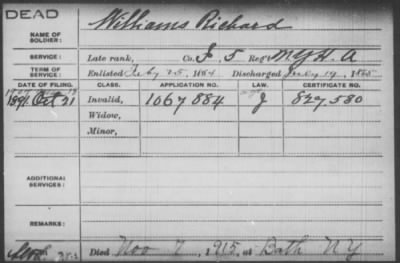 DEAD
NAME OF SOLDIER: Williams Richard
SERVICE: Late rank, Co. I 5 Reg't N.Y.H.A
TERM OF SERVICE: Enlisted Feby 25, 1864 Discharged July 19, 1865
DATE OF FILING. CLASS. APPLICATION NO. LAW. CERTIFICATE NO.
1891 Oct 21 Invalid, 1067884 J 827,580
Widow,
Minor,
ADDITIONAL SERVICES:
REMARKS:
Died Nov 7, 1915, at Bath NY